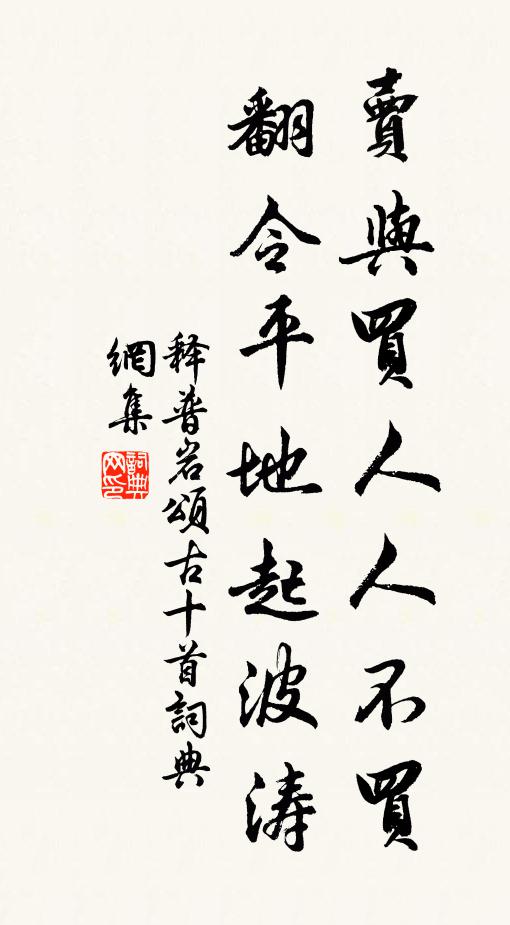 賣與買人人不買
翻令平地起波濤
释普岩頌古十首詞典
網集
詞典網印